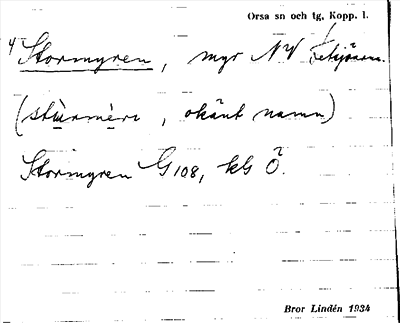 Orsa sn och tg, Kopp. l.
4 Stormyren, myr NV
(stùrmèrẹ, okänt namn)
Stormyren G108, kG Ö.
Bror Lindén 1934